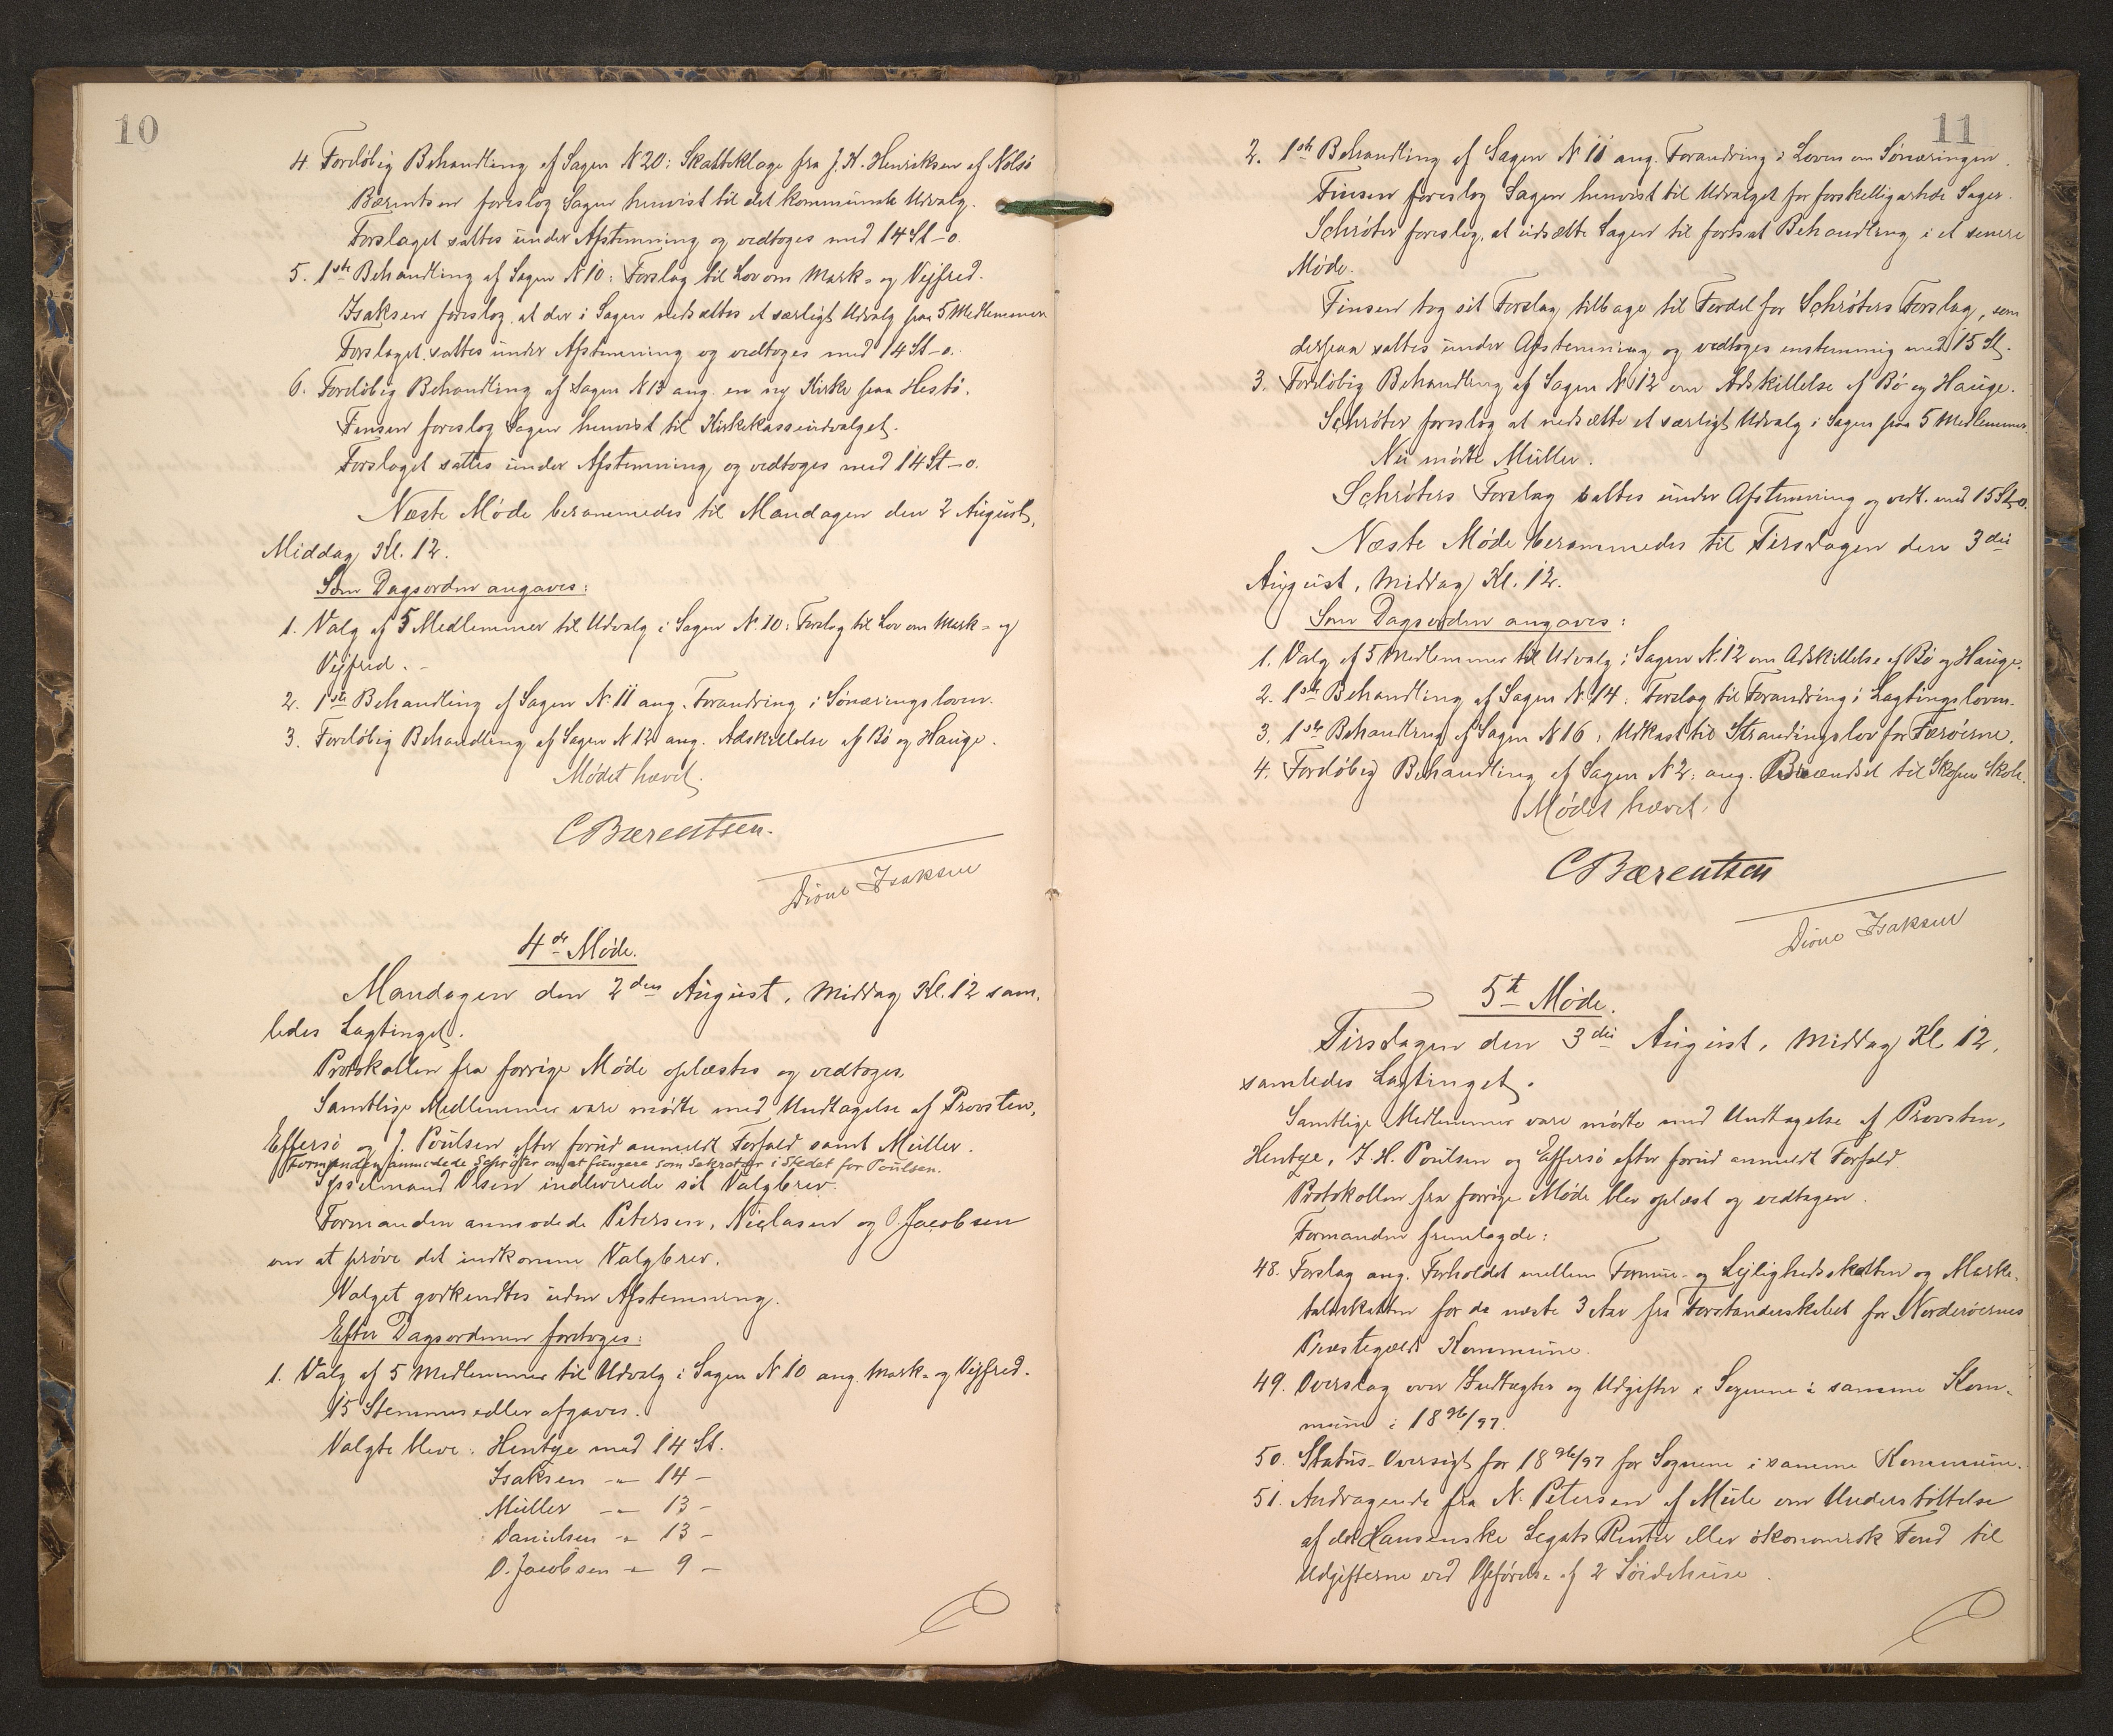 10
4. Foreløbig Behandling af Sagen N 20: Skatteklage fra J. K. Henriksen af Nolsø
Bærentsen foreslog Sagen henvist til det kommunale Udvalg.
Forslaget sattes under Afstemning og vedtoges med 14 St - 0.
5. 1ste Behandling af Sagen N 10: Forslag til Lov om Mark- og Vejfred.
Isaksen foreslog, at der i Sagen nedsættes et særligt Udvalg paa 5 Medlemmer
Forslaget sattes under Afstemning og vedtoges med 14 St - 0.
6. Foreløbig Behandling af Sagen N 13 ang. en ny Kirke paa Hestø.
Finsen foreslog Sagen henvist til Kirkekasseudvalget.
Forslaget sattes under Afstemning og vedtoges med 14 St - 0.
Næste Møde berammedes til Mandagen den 2 August,
Middag Kl. 12.
Som Dagsorden angaves:
1. Valg af 5 Medlemmer til Udvalg i Sagen N. 10: Forslag til Lov om Mark- og
Vejfred. -
2. 1ste Behandling af Sagen N. 11 ang. Forandring i Sønæringsloven.
3. Foreløbig Behandling af Sagen N 12 ang. Adskillelse af Bø og Hauge.
Mødet hævet.
C Bærentsen.
Dione Isaksen
4de Møde.
Mandagen den 2den August, Middag Kl. 12 sam-
ledes Lagtinget.
Protokollen fra forrige Møde oplæstes og vedtoges.
Samtlige Medlemmer vare mødte med Undtagelse af Provsten,
Effersø og J. Poulsen efter forud anmeldt Forfald samt Müller.
Formanden anmodede Schrøter om at fungere som Sekretær i Stedet for Poulsen.
Sysselmand Olsen indleverede sit Valgbrev.
Formanden anmodede Petersen, Niclasen og O. Jacobsen
om at prøve det indkomne Valgbrev.
Valget godkendtes uden Afstemning.
Efter Dagsordenen foretoges:
1. Valg af 5 Medlemmer til Udvalg i Sagen N 10 ang. Mark- og Vejfred.
15 Stemmesedler afgaves.
Valgte bleve: Hentze med 14 St.
Isaksen -"- 14 -
Müller -"- 13 -
Danielsen -"- 13 -
O. Jacobsen -"- 9 -
11
2. 1ste Behandling af Sagen N 11 ang. Forandring i Loven om Sønæringen.
Finsen foreslog Sagen henvist til Udvalget for forskelligartede Sager.
Schrøter foreslog, at udsætte Sagen til fortsat Behandling i et senere
Møde.
Finsen tog sit Forslag tilbage til Fordel for Schrøters Forslag, som
derpaa sattes under Afstemning og vedtoges enstemmig med 15 St.
3. Foreløbig Behandling af Sagen N 12 om Adskillelse af Bø og Hauge.
Schrøter foreslog at nedsætte et særligt Udvalg i Sagen paa 5 Medlemmer.
Nu mødte Müller.
Schrøters Forslag sattes under Afstemning og vedt. med 15 St - 0.
Næste Møde berammedes til Tirsdagen den 3die
August, Middag Kl. 12.
Som Dagsorden angaves:
1. Valg af 5 Medlemmer til Udvalg i Sagen N. 12 om Adskillelse af Bø og Hauge.
2. 1ste Behandling af Sagen N. 14: Forslag til Forandring i Lagtingsloven.
3. 1ste Behandling af Sagen N 16: Udkast til Strandingslov for Færøerne.
4. Foreløbig Behandling af Sagen N 2: ang. Brændsel til Skopen Skole.
Mødet hævet.
C Bærentsen
Dione Isaksen
5te Møde.
Tirsdagen den 3die August, Middag Kl 12,
samledes Lagtinget.
Samtlige Medlemmer vare mødte med Undtagelse af Provsten,
Hentze, J. H. Poulsen og Effersø efter forud anmeldt Forfald
Protokollen fra forrige Møde blev oplæst og vedtagen.
Formanden fremlagde:
48. Forslag ang. Forholdet mellem Formue- og Lejlighedsskatten og Marke-
talsskatten for de næste 3 Aar fra Forstanderskabet for Norderøernes
Præstegælds Kommune.
49. Overslag over Indtægter og Udgifter i Sognene i samme Kom-
mune i 1896/97.
50. Status-Oversigt for 1896/97 for Sognene i samme Kommune.
51. Andragende fra N. Petersen af Mule om Understøttelse
af det Hansenske Legats Renter eller økonomisk Fond til
Udgifterne ved Opførelse af 2 Soidehuse.